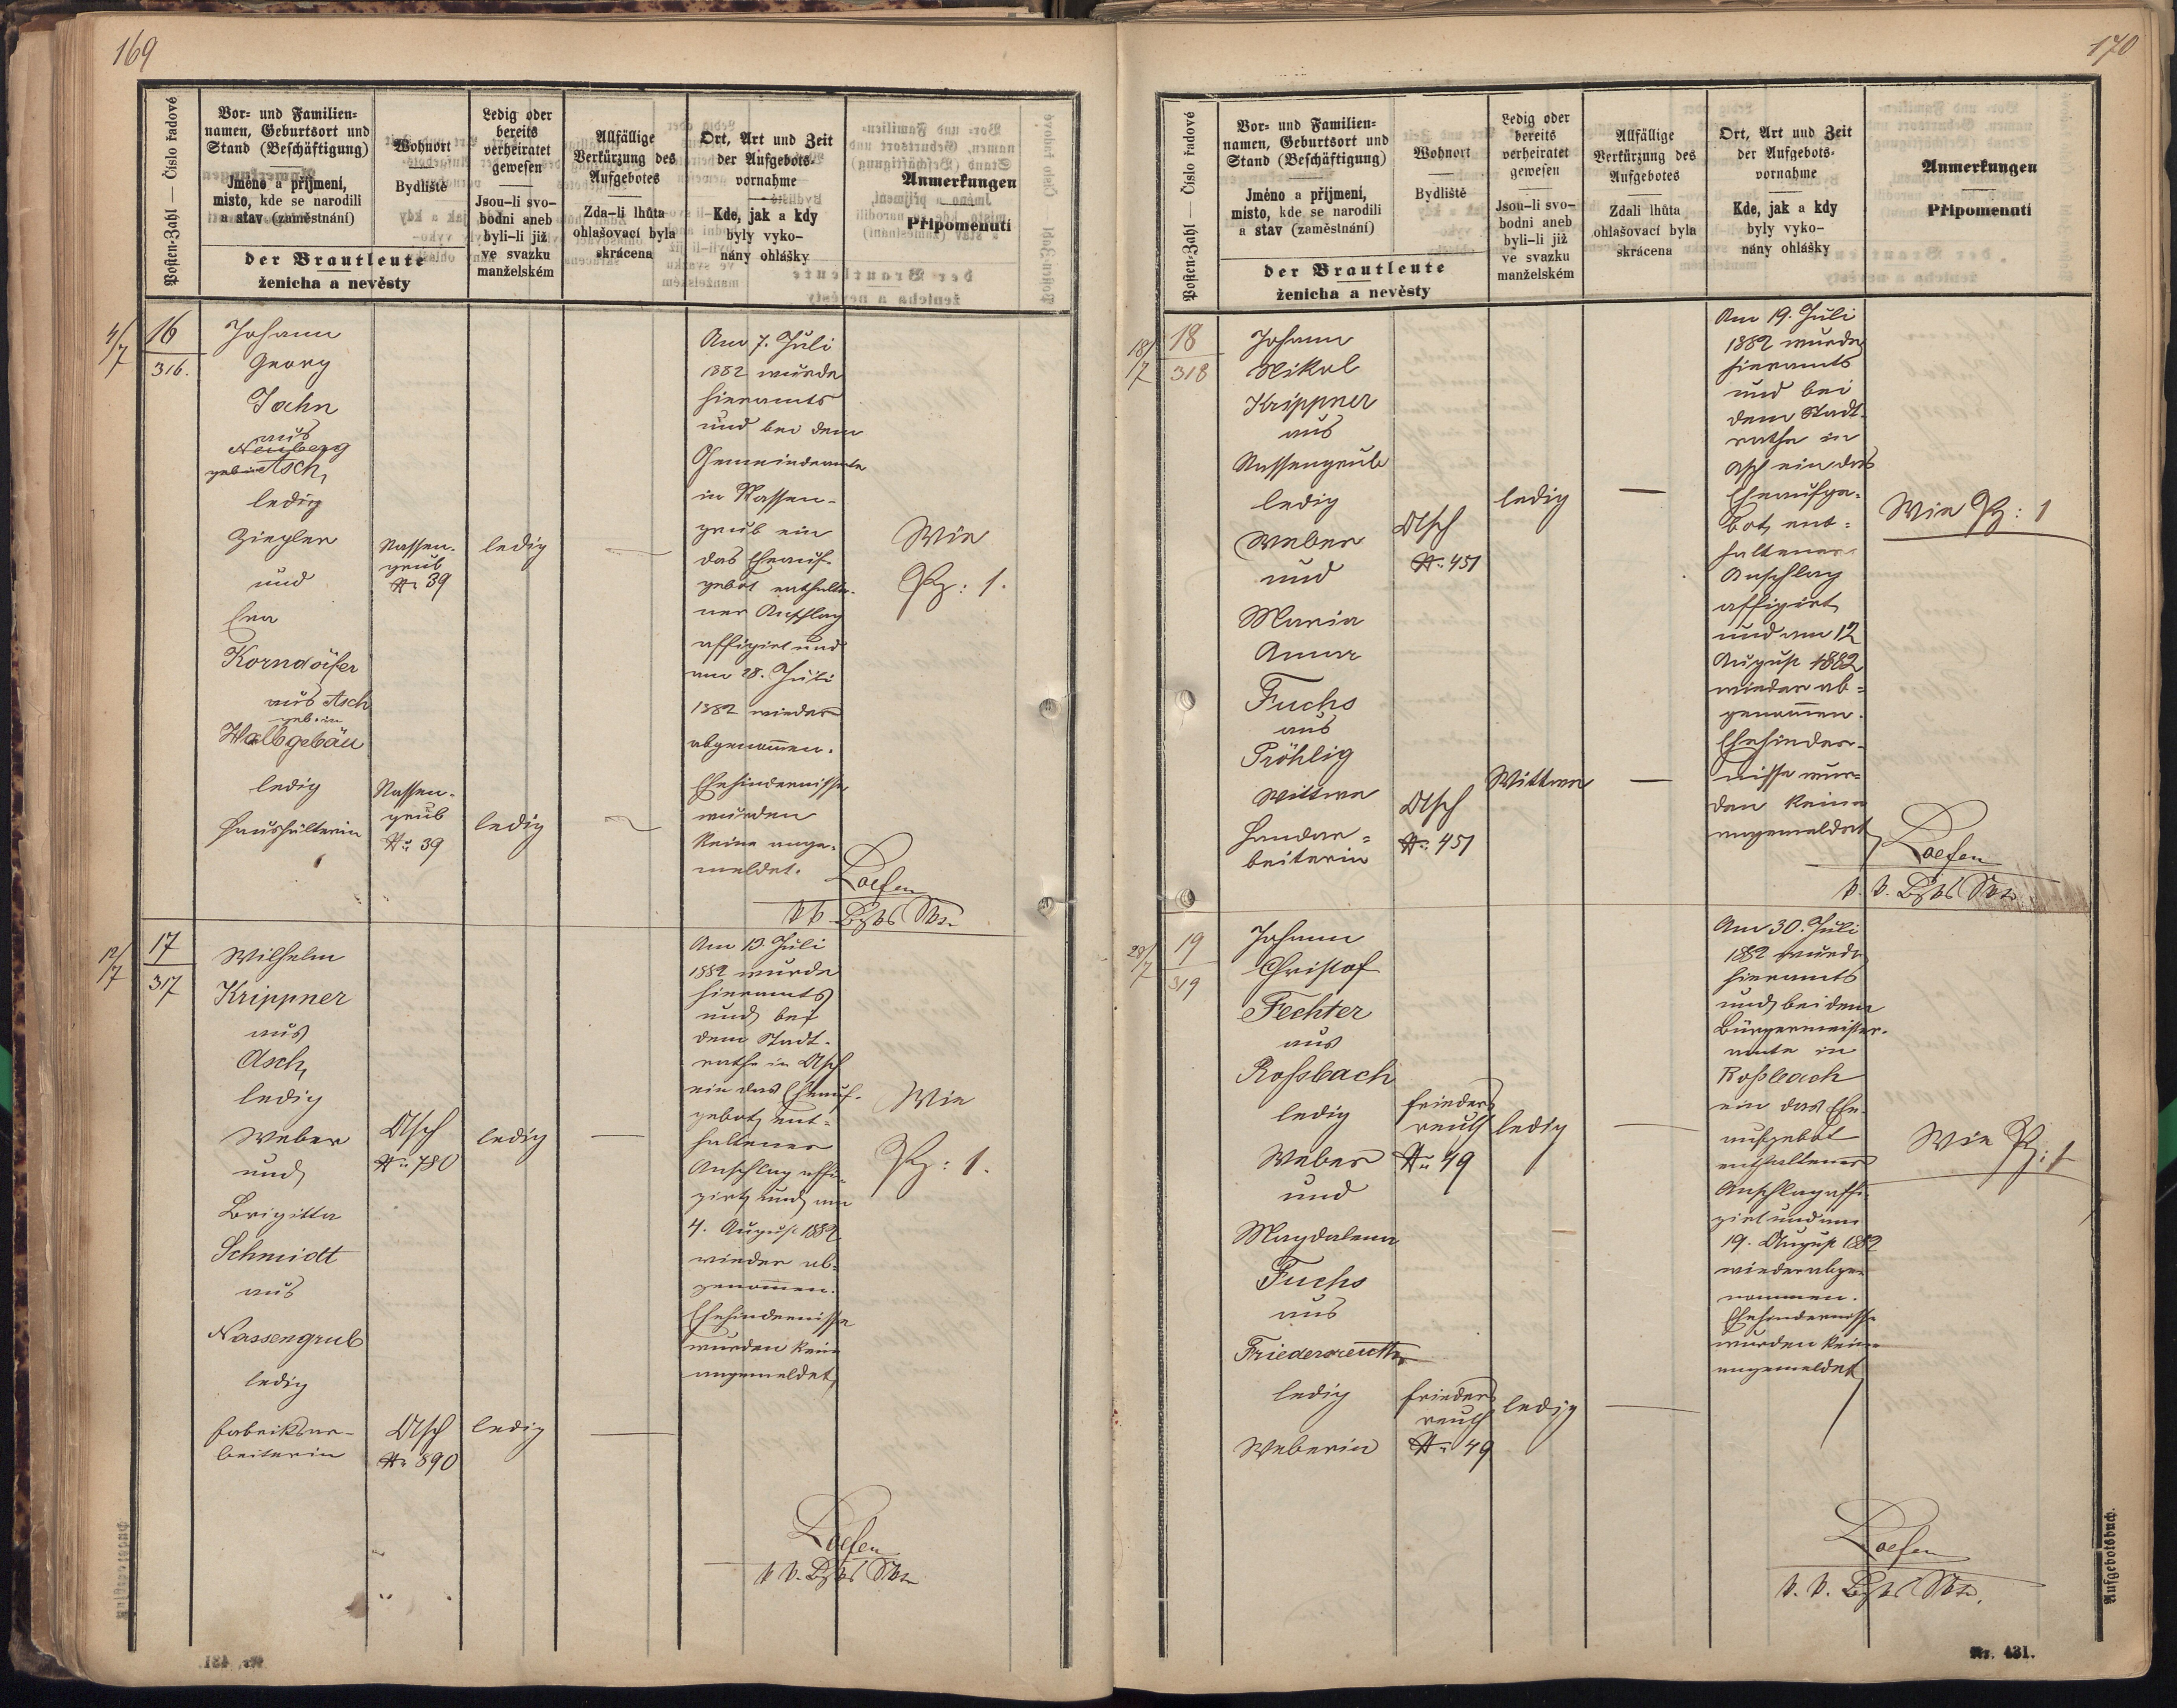 169
Posten-Zahl — Číslo řadové
Vor- und Familien-
namen, Geburtsort und
Stand (Beschäftigung)
Jméno a příjmení,
místo, kde se narodili
a stav (zaměstnání)
der Brautleute
ženicha a nevěsty
Wohnort
Bydliště
Ledig oder
bereits
verheiratet
gewesen
Jsou-li svo-
bodni aneb
byli-li již
ve svazku
manželském
Allfällige
Verkürzung des
Aufgebotes
Zda-li lhůta
ohlašovací byla
skrácena
Ort, Art und Zeit
der Aufgebots-
vornahme
Kde, jak a kdy
byly vyko-
nány ohlášky
Anmerkungen
Připomenutí
4/7
16
316.
Johann
Georg
Jahn
aus
Neuberg
geb. in Asch,
ledig
Ziegler
und
Eva
Korndöifer
aus Asch
geb. in
Halbgebäu
ledig
Haushälterin
Nassen-
grub
No 39
ledig
—
Nassen-
grub
No 39
ledig
Am 7. Juli
1882 wurde
hieramts
und bei dem
Gemeindeamte
in Nassen-
grub ein
das Eheauf-
gebot enthalte-
ner Anschlag
affigirt und
am 28. Juli
1882 wieder
abgenommen.
Ehehindernisse
wurden
keine ange-
meldet.
Wie
Pz: 1.
12/7
17
317
Wilhelm
Krippner
aus
Asch,
ledig
Weber
und
Brigitta
Schmidt
aus
Nassengrub
ledig
Fabriksar-
beiterin
Asch
No 780
ledig
—
Asch
No 890
ledig
—
Am 13. Juli
1882 wurde
hieramts
und bei
dem Stadt-
rathe in Asch
ein das Eheauf-
gebot ent-
haltener
Anschlag affi-
girt und am
4. August 1882
wieder ab-
genommen.
Ehehindernisse
wurden keine
angemeldet,
Wie
Pz: 1.
Nr. 431.
170
Posten-Zahl — Číslo řadové
Vor- und Familien-
namen, Geburtsort und
Stand (Beschäftigung)
Jméno a příjmení,
místo, kde se narodili
a stav (zaměstnání)
der Brautleute
ženicha a nevěsty
Wohnort
Bydliště
Ledig oder
bereits
verheiratet
gewesen
Jsou-li svo-
bodni aneb
byli-li již
ve svazku
manželském
Allfällige
Verkürzung des
Aufgebotes
Zdali lhůta
ohlašovací byla
skrácena
Ort, Art und Zeit
der Aufgebots-
vornahme
Kde, jak a kdy
byly vyko-
nány ohlášky
Anmerkungen
Připomenutí
18/7
18
318
Johann
Nikol
Krippner
aus
Nassengrub
ledig
Weber
und
Maria
Anna
Fuchs
aus
Fröhlig
Wittwe
Handar-
beiterin
Asch
No 451
ledig
—
Asch
No 451
Wittwe
—
Am 19. Juli
1882 wurde
hieramts
und bei
dem Stadt-
rathe in
Asch ein das
Eheaufge-
bot ent-
haltener
Anschlag
affigirt
und am 12
August 1882
wieder ab-
genommen.
Ehehinder-
nisse wur-
den keine
angemeldet
Wie Pz: 1
28/7
19
319
Johann
Christof
Fechter
aus
Roßbach
ledig
Weber
und
Magdalena
Fuchs
aus
Friedersreuth
ledig
Weberin
Frieders
reuth
No 49
ledig
—
Frieders
reuth
No 49
ledig
—
Am 30. Juli
1882 wurde
hieramts
und bei dem
Bürgermeister-
amte in
Roßbach
ein das Ehe-
aufgebot
enthaltener
Anschlag affi-
girt und am
19. August 1882
wieder abge-
nommen.
Ehehindernisse
wurden keine
angemeldet
Wie Pz: 1
Aufgebotsbuch.
Nr. 431.